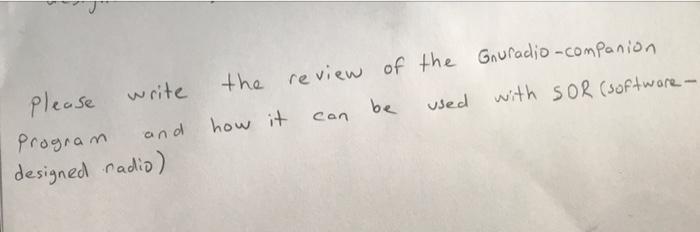 Please write the review of the Gnuradio-companion
Program and how it can be used with SOR (software-
designed radio)